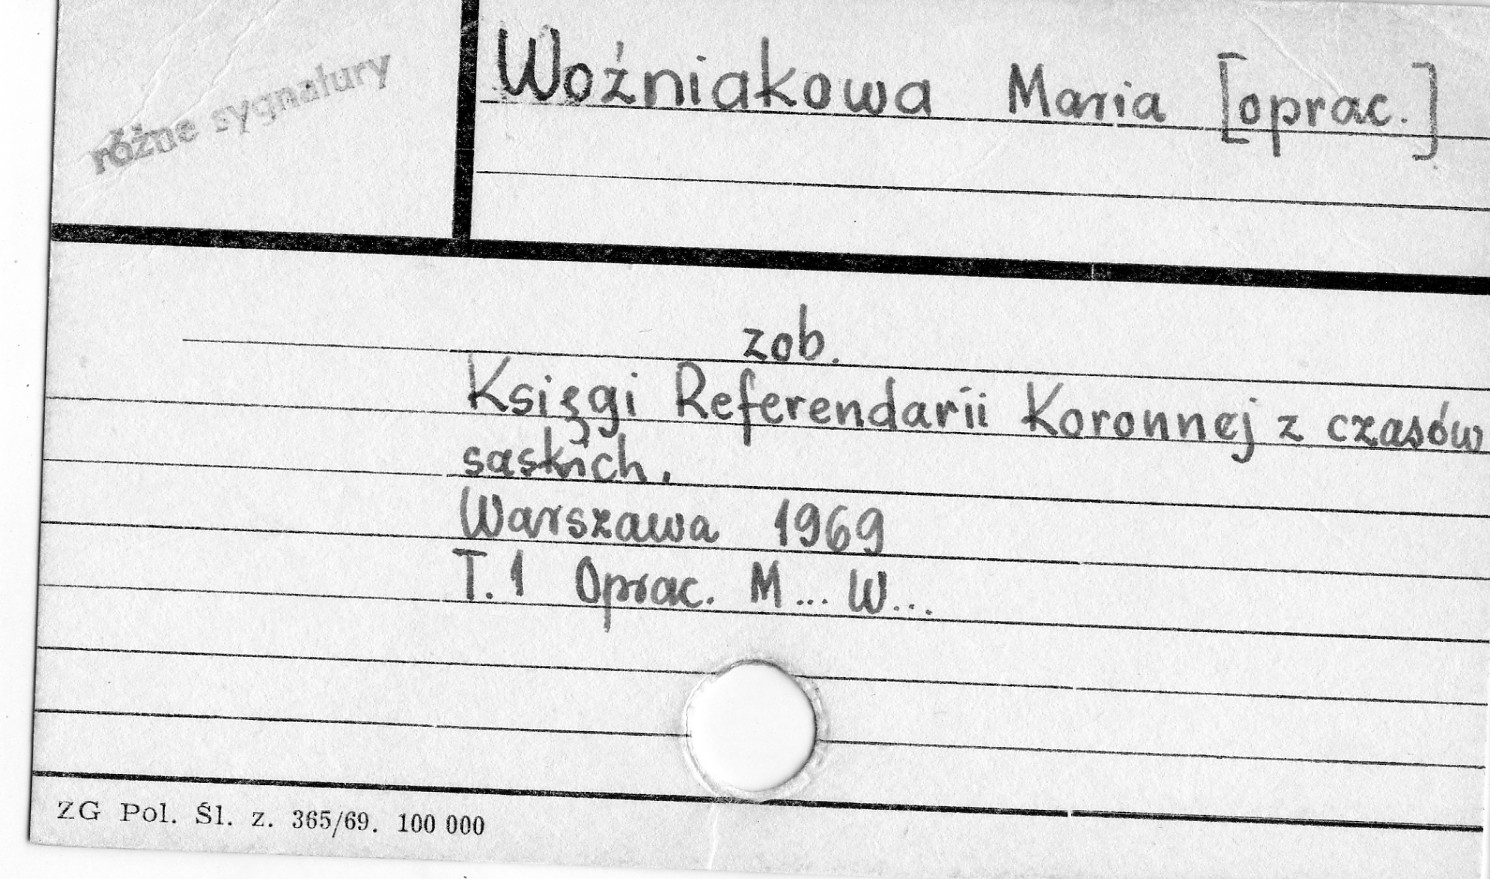 różne sygnatury
Woźniakowa Maria [oprac.]
zob.
Księgi Referendarii Koronnej z czasów
saskich.
Warszawa 1969
T. 1 Oprac. M... W...
ZG Pol. Śl. z. 365/69. 100 000